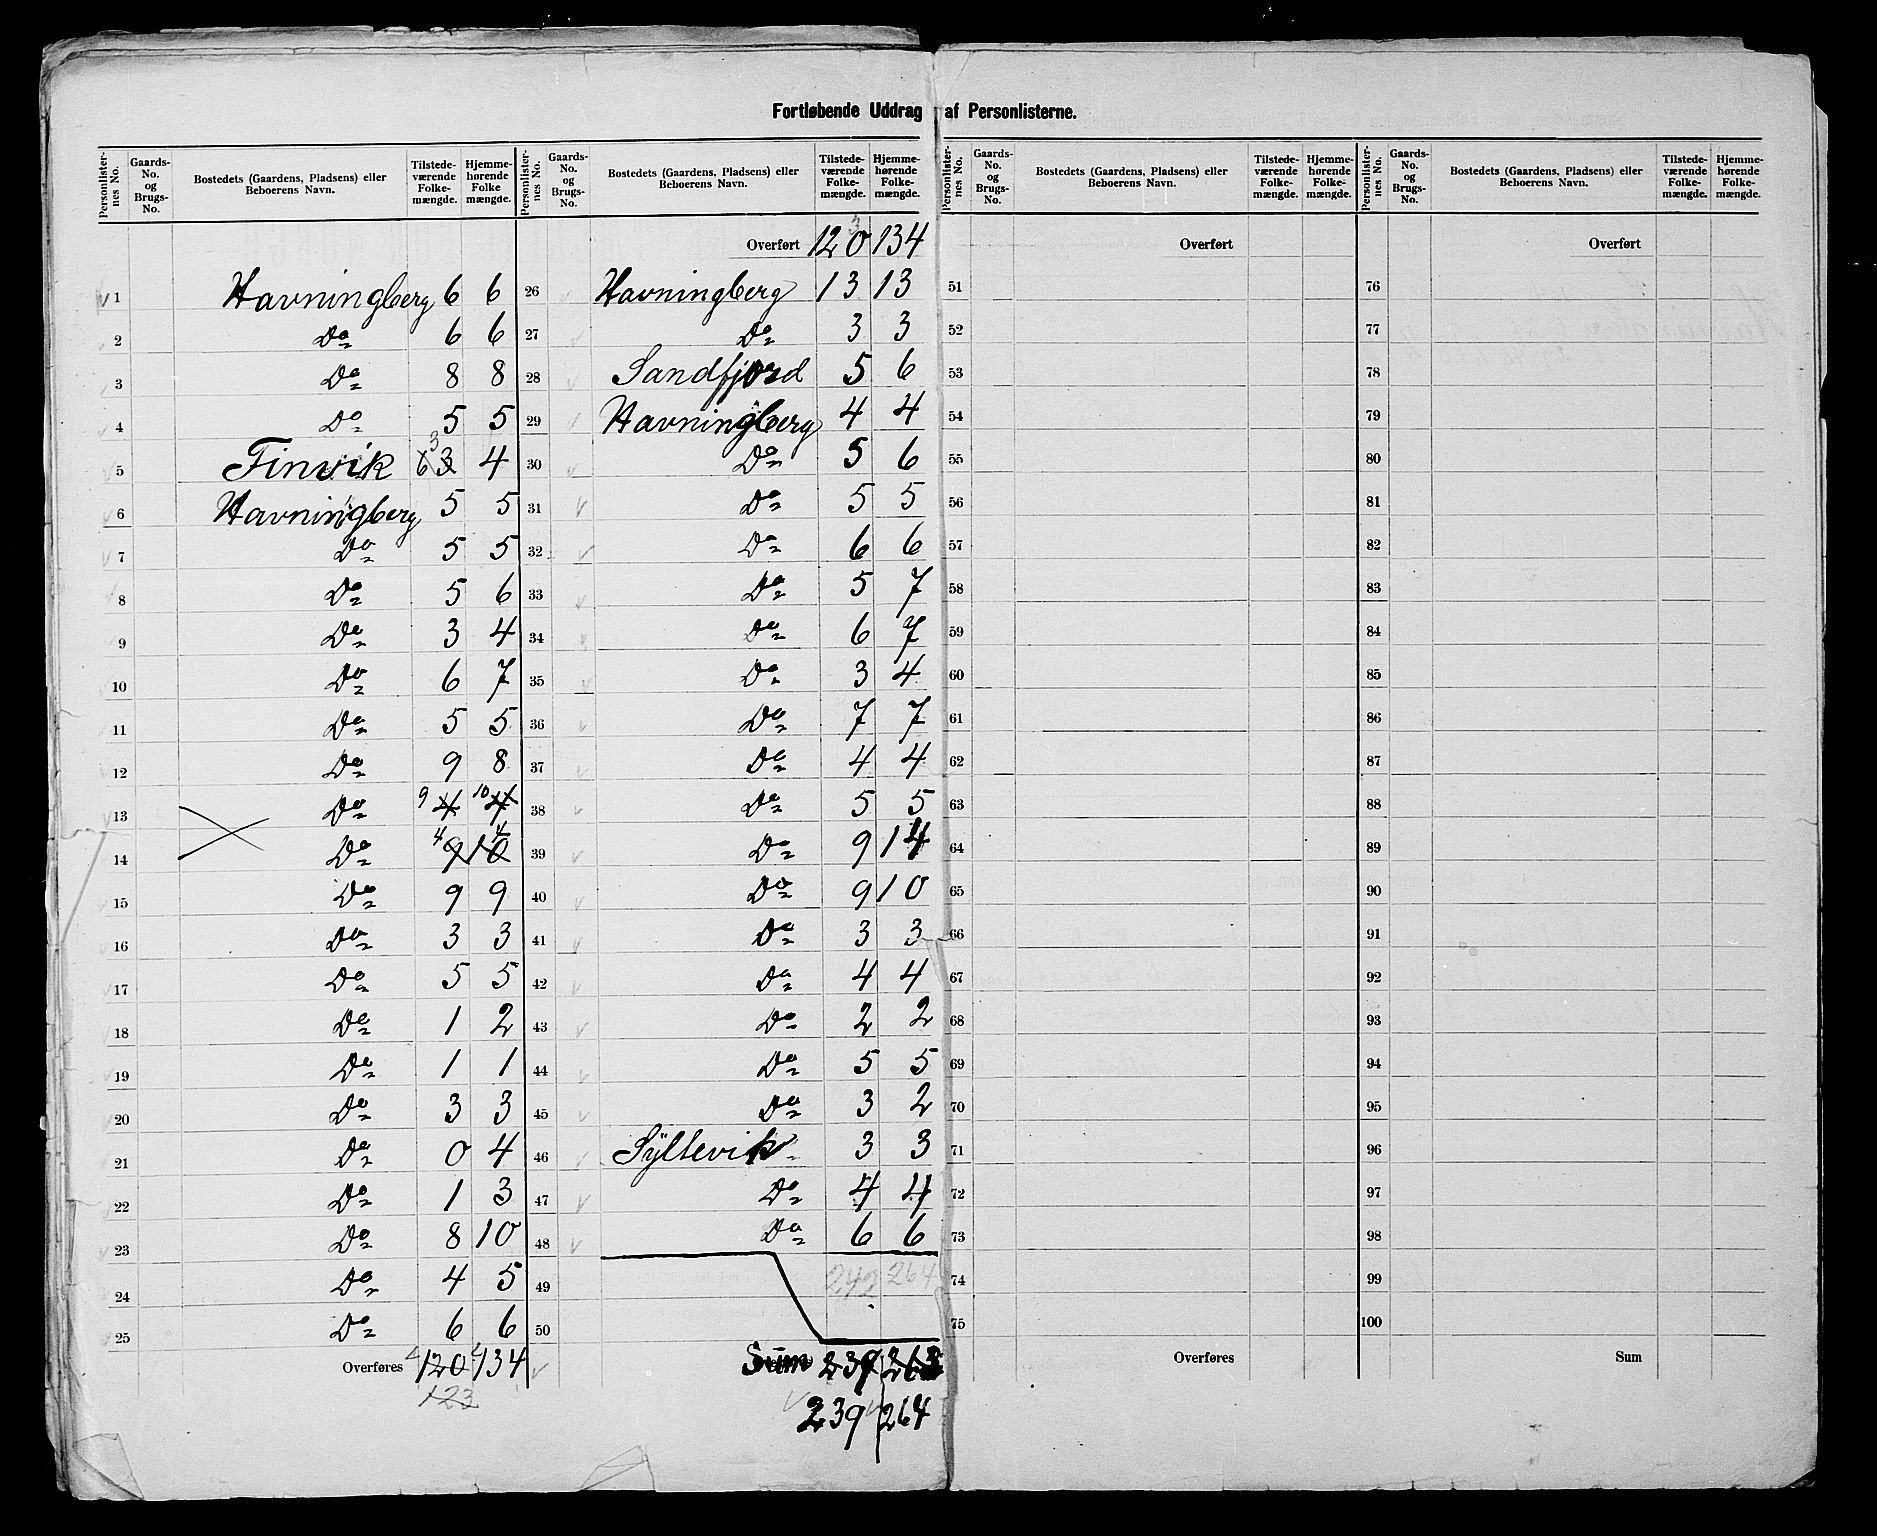 Fortløbende Uddrag af Personlisterne.
Personlister-nes No. | Gaards-No. og Brugs-No. | Bostedets (Gaardens, Pladsens) eller Beboerens Navn. | Tilstede-værende Folke-mængde. | Hjemme-hørende Folke mængde.
1 Havningberg 6 6
2 Do 6 6
3 Do 8 8
4 Do 5 5
5 Finvik 6 3 3 4
6 Havningberg 5 5
7 Do 5 5
8 Do 5 6
9 Do 3 4
10 Do 6 7
11 Do 5 5
12 Do 9 8
13 Do 9 4 10 4
14 Do 4 9 4 10
15 Do 9 9
16 Do 3 3
17 Do 5 5
18 Do 1 2
19 Do 1 1
20 Do 3 3
21 Do 0 4
22 Do 1 3
23 Do 8 10
24 Do 4 5
25 Do 6 6
Overføres 120 134
123
Personlister-nes No. | Gaards-No. og Brugs-No. | Bostedets (Gaardens, Pladsens) eller Beboerens Navn. | Tilstede-værende Folke-mængde. | Hjemme-hørende Folke-mængde.
3
Overført 120 134
26 Havningberg 13 13
27 Do 3 3
28 Sandfjord 5 6
29 Havningberg 4 4
30 Do 5 6
31 Do 5 5
32 Do 6 6
33 Do 5 7
34 Do 6 7
35 Do 3 4
36 Do 7 7
37 Do 4 4
38 Do 5 5
39 Do 9 14
40 Do 9 10
41 Do 3 3
42 Do 4 4
43 Do 2 2
44 Do 5 5
45 Do 3 2
46 Syltevik 3 3
47 Do 4 4
48 Do 6 6
49 242 264
50
Sum 239 263
239 264
Personlister-nes No. | Gaards-No. og Brugs-No. | Bostedets (Gaardens, Pladsens) eller Beboerens Navn. | Tilstede-værende Folke-mængde. | Hjemme-hørende Folke-mængde.
Overført
51
52
53
54
55
56
57
58
59
60
61
62
63
64
65
66
67
68
69
70
71
72
73
74
75
Overføres
Personlister-nes No. | Gaards-No. og Brugs-No. | Bostedets (Gaardens, Pladsens) eller Beboerens Navn. | Tilstede-værende Folke-mængde. | Hjemme-hørende Folke-mængde.
Overført
76
77
78
79
80
81
82
83
84
85
86
87
88
89
90
91
92
93
94
95
96
97
98
99
100
Sum